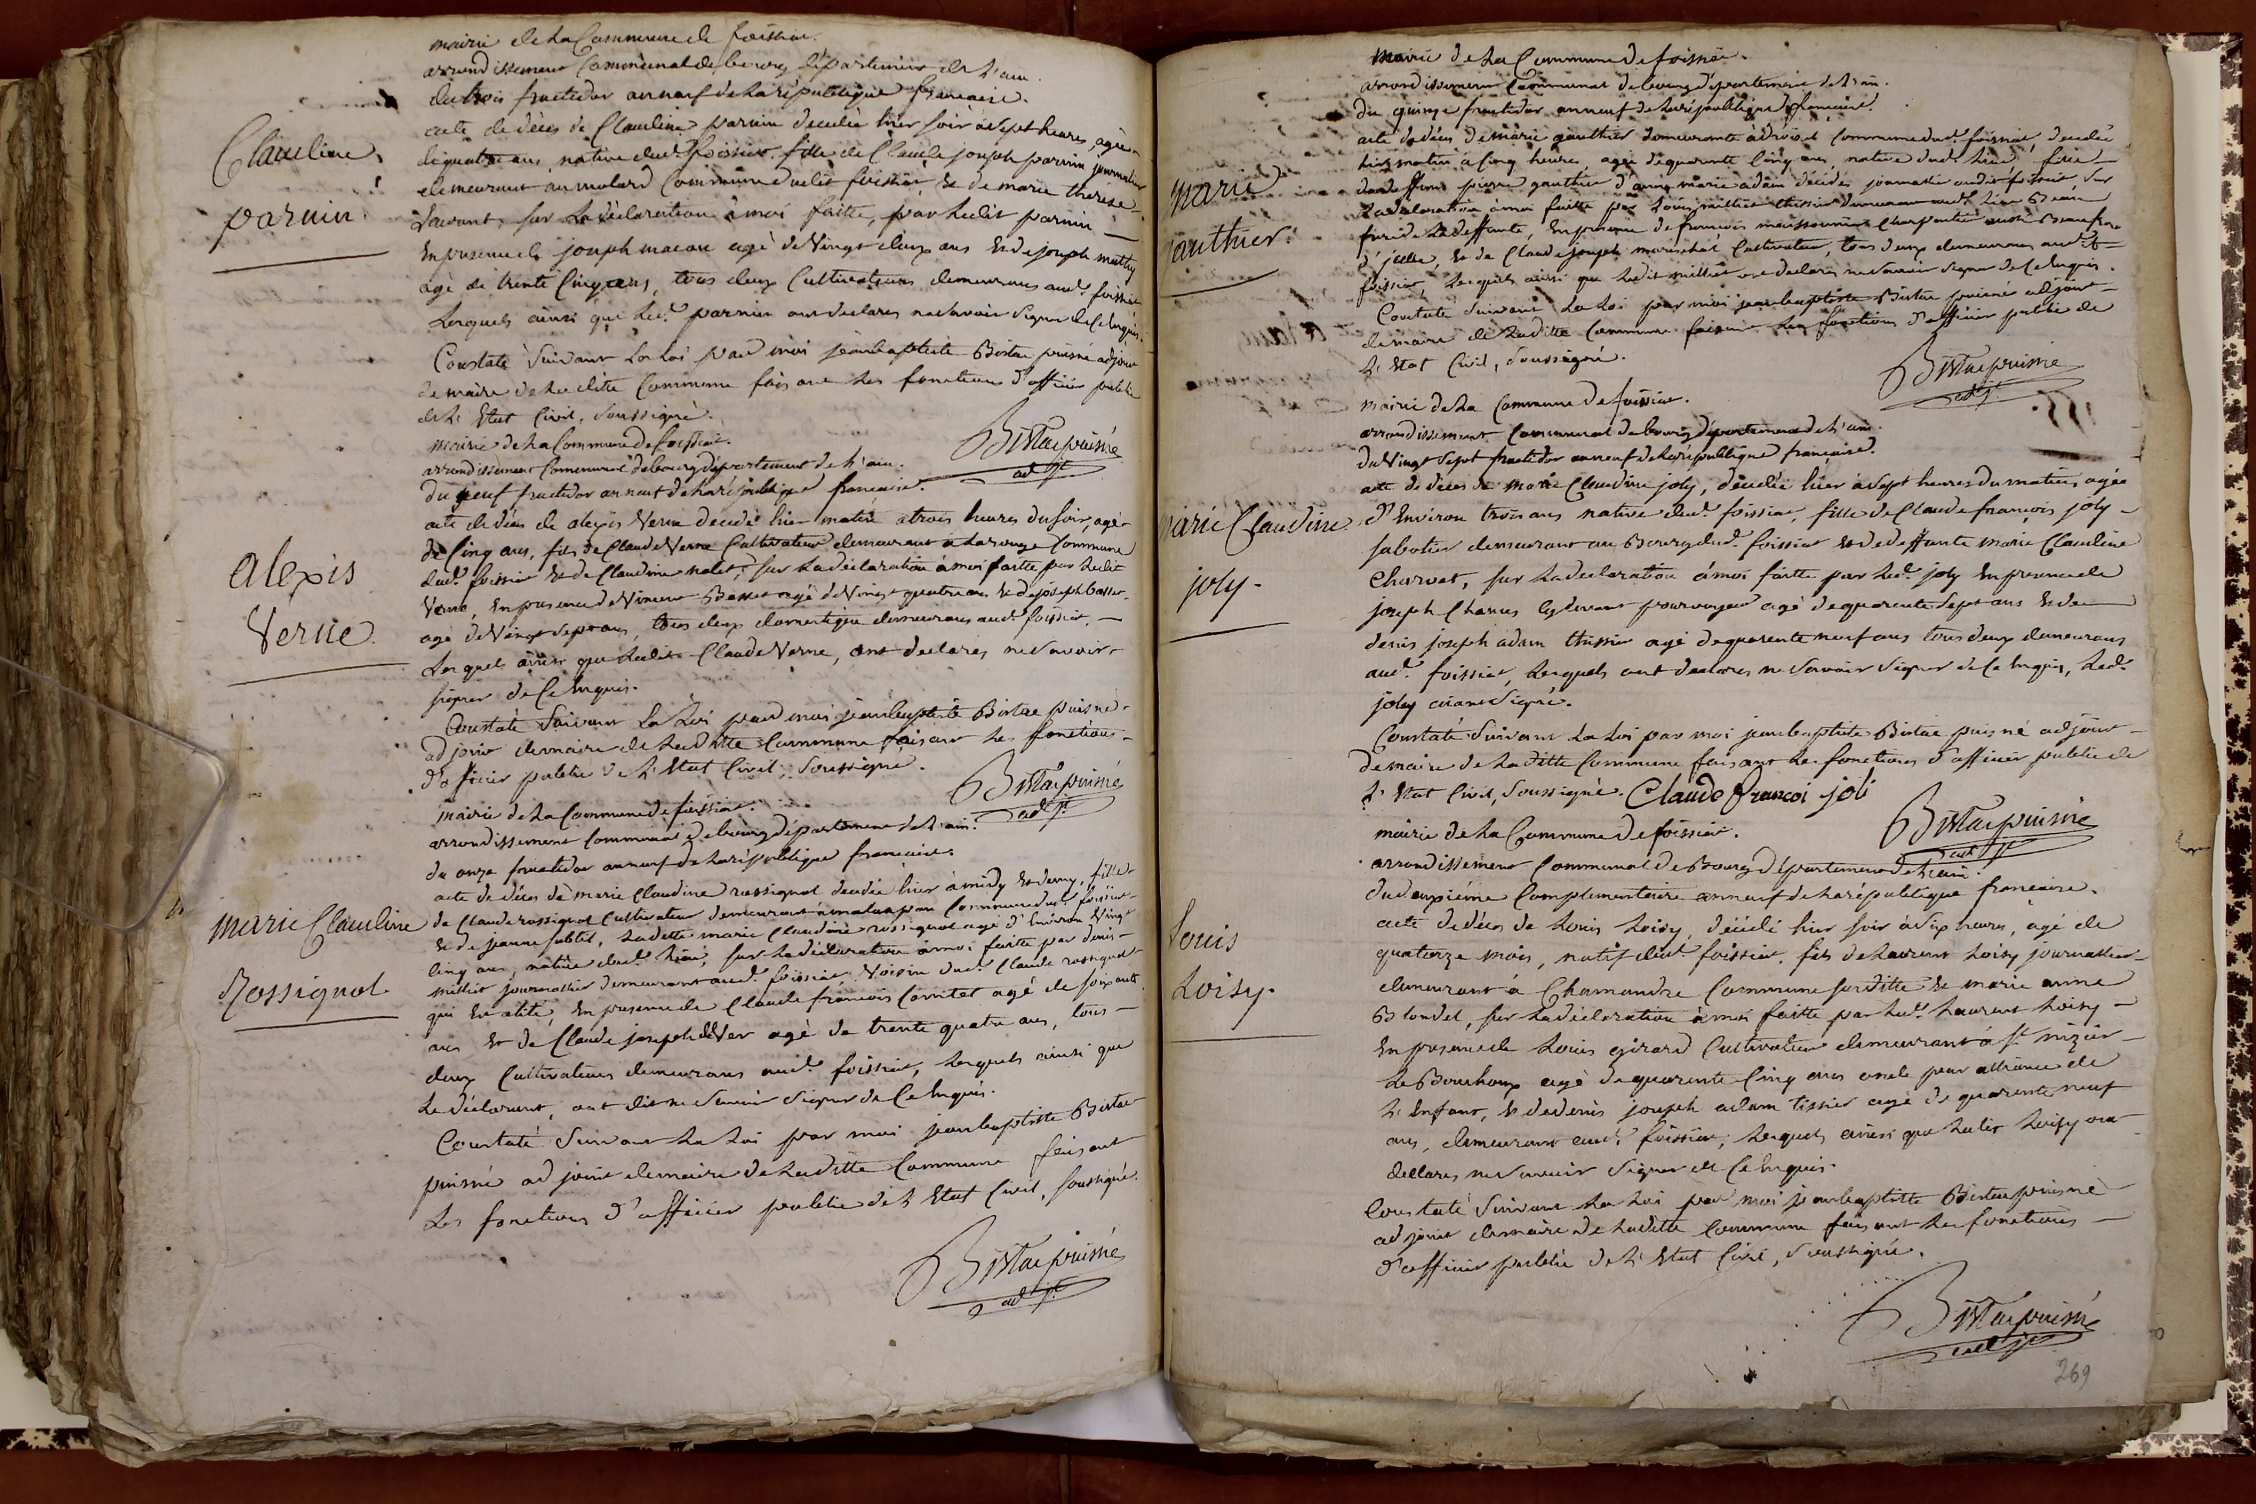 mairie de la Commune de foissiat.
arrondissement Communal de bourg département de l'ain.
du trois fructidor an neuf de la république francaise.
acte de déces de Claudine parnin decedée hier soir à sept heures, agée
de quatre ans native dud. foissiat fille de Claude joseph parnin journalier
demeurant au molard Commune dudit foissiat et de marie therese
Savant, sur la déclaration à moi faitte, par ledit parnin
En presence de joseph macon agé de Vingt deux ans et de joseph mathy
agé de trente Cinq ans, tous deux Cultivateurs demeurans aud. foissiat
Lesquels ainsi que led. parnin ont declarés ne savoir signer de ce Enquis.
Constaté Suivant La Loi par moi jean baptiste Bistac puisné adjoint
de maire de la dite Commune faisant les fonctions d'officier public
de L'Etat Civil, soussigné.
Claudine
parnin
Bistac puisné
adjt
mairie de la Commune de foissiat.
arrondissement Communal de bourg département de l'ain.
du neuf fructidor an neuf de la république francaise.
acte de déces de alexis Verne decedé hier matin a trois heures du soir, agé
de Cinq ans, fils de Claude Verne Cultivateur demeurant a la rouge Commune
dud. foissiat et de Claudine nalet, sur la déclaration à moi faitte par ledit
Verne, En presence de Vincent Basset agé de Vingt quatre ans et de joseph basset
agé de Vingt Sept ans, tous deux domestique demeurans aud. foissiat,
Lesquels ainsi que ledit Claude Verne, ont declarés ne savoir
signer de Ce Enquis.
Constaté Suivant La Loi par moi jean baptiste Bistac puisné
adjoint de maire de la ditte Commune faisant les fonctions
d'officier public de L'Etat Civil, soussigné.
alexis
Verne
Bistac puisné
adjt
mairie de la Commune de foissiat.
arrondissement Communal de bourg département de l'ain.
du onze fructidor an neuf de la république francaise.
acte de déces de marie Claudine rossignol decedée hier à midy et demy, fille
de Claude rossignol Cultivateur demeurant à Commune dud. foissiat
et de jeanne sublet, ladette marie Claudine rossignol agé d'Environ Vingt
Cinq ans, native dud. lieu, sur la déclaration à moi faitte par denis
millet journallier demeurant aud. foissiat, Voisin dud. Claude rossignol
qui En alité, En presence de Claude françois Comtet agé de soixante
ans et de Claude joseph agé de trente quatre ans, tous
deux Cultivateurs demeurans aud. foissiat, Lesquels ainsi que
Le déclarant, ont dit ne Savoir Signer de Ce Enquis.
Constaté Suivant La Loi par moi jean baptiste Bistac
puisné adjoint de maire de la ditte Commune faisant
Les fonctions d'officier public de L'Etat Civil, soussigné.
marie Claudine
Rossignol
Bistac puisné
adjt
mairie de la Commune de foissiat.
arrondissement Communal de bourg département de l'ain.
du quinze fructidor an neuf de la république francaise.
acte de déces de marie gauthier demeurante à Commune dud. foissiat, decedée
hier matin à Cinq heures, agée de quarante Cinq ans, native dud. lieu, fille
de deffunt pierre gauthier d'avec marie adam décédés journallier audit foissiat, sur
la declaration à moi faitte par Louis millet tissier demeurant aud. lieu Beau
frere de la deffunte, En presence de françois maissonnier Charpentier aussi Beau frere
d'jcelle, et de Claude joseph marechal Cultivateur, tous deux demeurans aud.
foissiat, Lesquels ainsi que ledit millet ont declarés ne Savoir signer de Ce Enquis.
Constaté Suivant La Loi par moi jean baptiste Bistac puisné adjoint
de maire de la ditte Commune faisant les fonctions d'officier public de
L'Etat Civil, soussigné.
Marie
gauthier.
Bistac puisné
adjt
mairie de la Commune de foissiat.
arrondissement Communal de bourg département de l'ain.
du Vingt Sept fructidor an neuf de la république francaise.
acte de déces de marie Claudine joly, décédée hier à sept heures du matin, agée
d'Environ trois ans native dud. foissiat, fille de Claude françois joly
sabotier demeurant au Bourg dud. foissiat et de deffunte marie Claudine
Charvet, sur la declaration à moi faitte par led. joly En presence de
joseph Chanus Cydevant pourvoyeur agé de quarente Sept ans et de
denis joseph adam tissier agé de quarente neuf ans tous deux demeurans
aud. foissiat, Lesquels ont declarés ne Savoir Signer de Ce Enquis, led.
joly aiant Signé.
Constaté Suivant La Loi par moi jean baptiste Bistac puisné adjoint
de maire de la ditte Commune faisant les fonctions d'officier public de
L'Etat Civil, soussigné. Claude francoi joli
marie Claudine
joly.
Bistac puisné
adjt
mairie de la Commune de foissiat.
arrondissement Communal de Bourg département de l'ain.
du deuxième Complementaire an neuf de la république francaise.
acte de déces de Louis Loisy, décédé hier soir à Six heures, agé de
quatorze mois, natif dud. foissiat, fils de Laurent Loisy journallier
demeurant à Chamandre Commune susditte et marie anne
Blondel, sur la déclaration à moi faitte par led. Laurent Loisy
En presence de Louis girard Cultivateur demeurant à St nizier
Le Bouchoux agé de quarente Cinq ans oncle par alliance de
L'Enfant, et de denis joseph adam tissier agé de quarente neuf
ans, demeurant aud. foissiat, Lesquels ainsi que ledit Loisy ont
déclarés ne Savoir Signer de Ce Enquis.
Constaté Suivant La Loi par moi jean baptiste Bistac puisné
adjoint de maire de la ditte Commune faisant les fonctions
d'officier public de L'Etat Civil, soussigné.
Louis
Loisy.
Bistac puisné
adjt
269